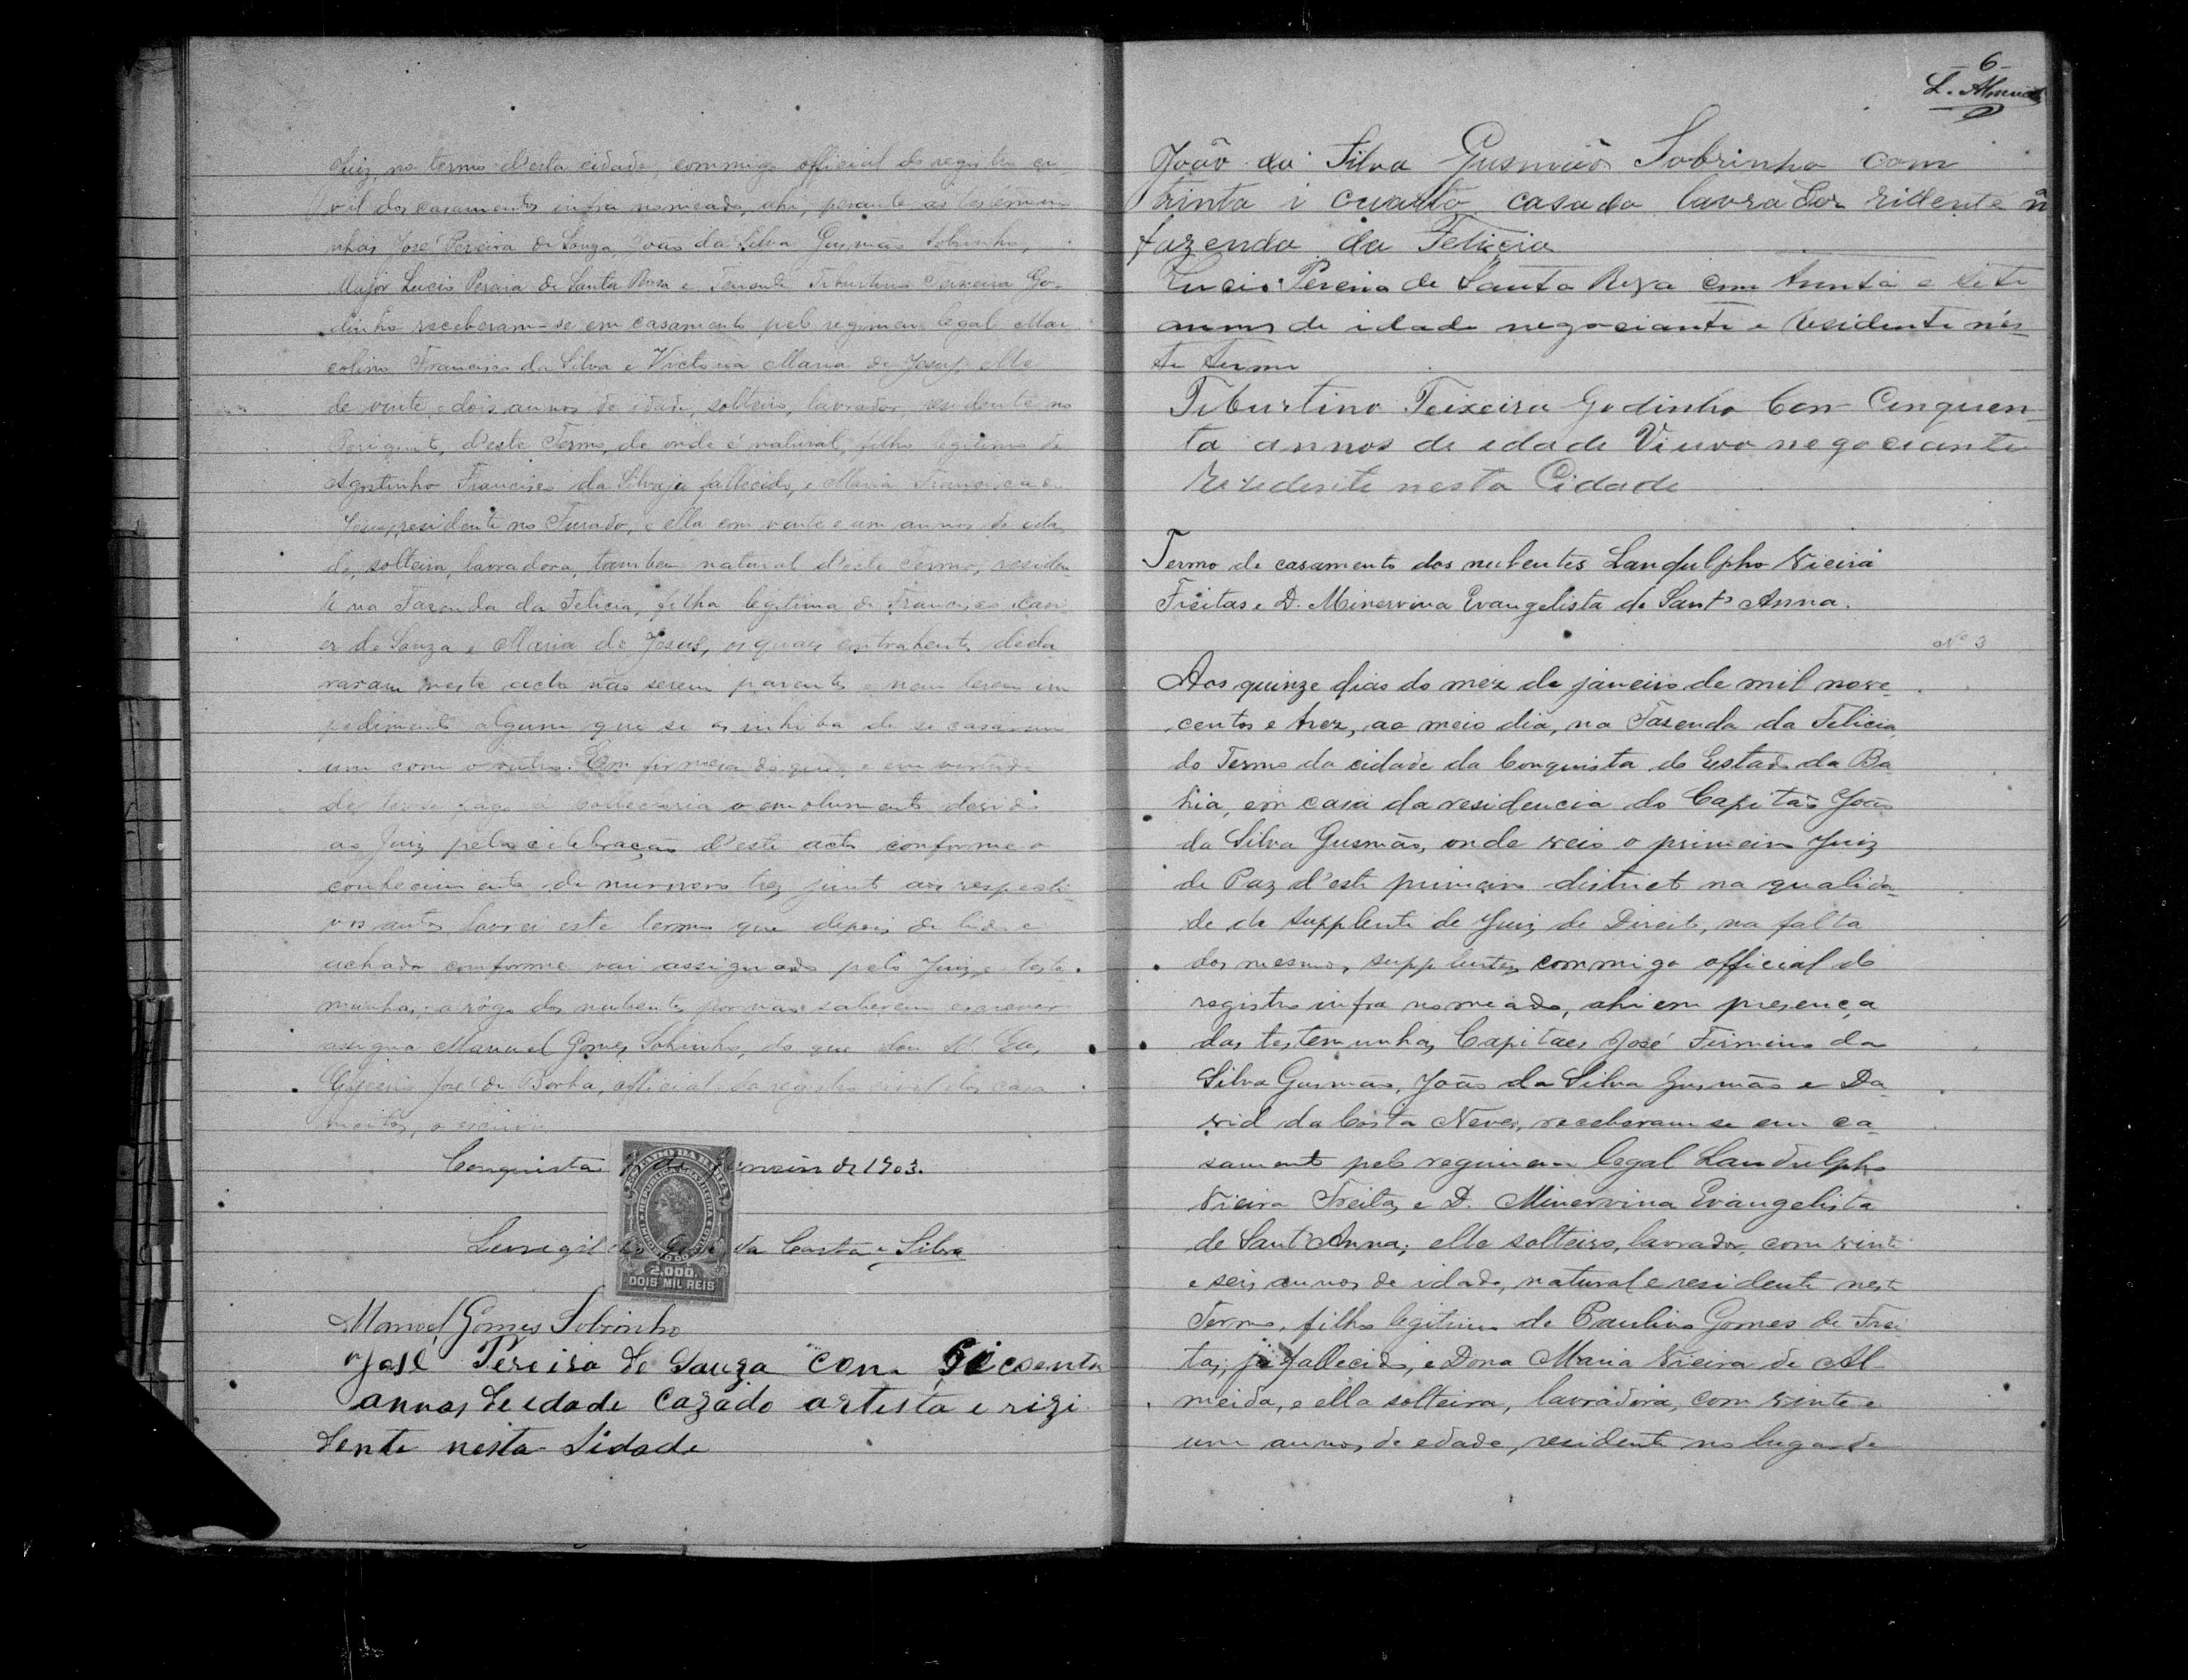 Juiz, no termo d'esta cidade, commigo official do registro ci
vil dos casamentos infra nomeado, ahi, perante as testemu
nhas José Pereira de Souza, João da Silva Gusmão Sobrinho,
Major Lucio Pereira de Santa Rosa e Tenente Tiburtino Teixeira Go-
dinho receberam-se em casamento pelo regimen legal Mar
colino Francisco da Silva e Victoria Maria de Jesus, elle
de vinte e dois annos de idade, solteiro, lavrador, residente no
d'este Termo, de onde é natural, filho legitimo de
Agostinho Francisco da Silva já fallecido, e Maria Francisca de
Jesus, residente no Furado, e ella com vinte e um annos de ida
de, solteira, lavradora, tambem natural d'este Termo, residen
te na Fazenda da Felicia, filha legitima de Francisco Xavi
er de Souza e Maria de Jesus, os quaes contrahentes decla
raram neste acto não serem parentes e nem terem im
pedimento algum que se os inhiba de se casarem
um com o outro. Em firmeza do que, e em virtude
de ter-se pago á collectoria o emolumento devido
ao Juiz pela celebração d'este acto conforme o
conhecimento de numero trez junto aos respecti-
vos autos lavrei este termo que depois de lido e
achado conforme vai assignado pelo Juiz e teste
munhas, a rôgo dos nubentes por não saberem escrever
assigna Manuel Gomes Sobrinho, do que dou fé. Eu,
José da Rocha, official do registro civil dos casa
mentos, o escrivi
Conquista de janeiro de 1903.
ESTADO DA BAHIA
2.000.
DOIS MIL REIS
da Costa e Silva
Manoel Gomes Sobrinho
José Pereira de Souza com Sicoenta
annos de edade cazado artista e rizi
dente nesta Sidade
-6-
L. Almeida
João da Silva Gusmão Sobrinho com
trinta i cuarto casado lavrador ridente n
fazenda da Felicia
Lucio Pereira de Santa Roza com trinta e sete
annos de idade negociante e residente nes-
te termo
Tiburtino Teixeira Godinho Con Cinquen
ta annos de edade Viuvo negociante
Rezedente nesta Cidade
Termo de casamento dos nubentes Landulpho Vieira
Freitas e D. Minervina Evangelista de Sant'Anna.
Nº 3
Aos quinze dias do mez de janeiro de mil nove-
centos e trez, ao meio dia, na Fazenda da Felicia
do Termo da cidade da Conquista do Estado da Ba
hia, em casa da residencia do Capitão João
da Silva Gusmão, onde veio o primeiro Juiz
de Paz d'este primeiro districto na qualida-
de de supplente de Juiz de Direito, na falta
dos mesmos supplentes, commigo official do
registro infra nomeado, ahi em presença
das testemunhas Capitães José Firmino da
Silva Gusmão, João da Silva Gusmão e Da-
vid da Costa Neves, receberam-se em ca-
samento pelo regimen legal Landulpho
Vieira Freitas e D. Minervina Evangelista
de Sant'Anna; elle solteiro, lavrador, com vinte
e seis annos de idade, natural e residente neste
Termo, filho legitimo de Paulino Gomes de Frei
tas, já fallecido, e Dona Maria Vieira de Al-
meida, e ella solteira, lavradora, com vinte e
um annos de edade, residente no lugar de